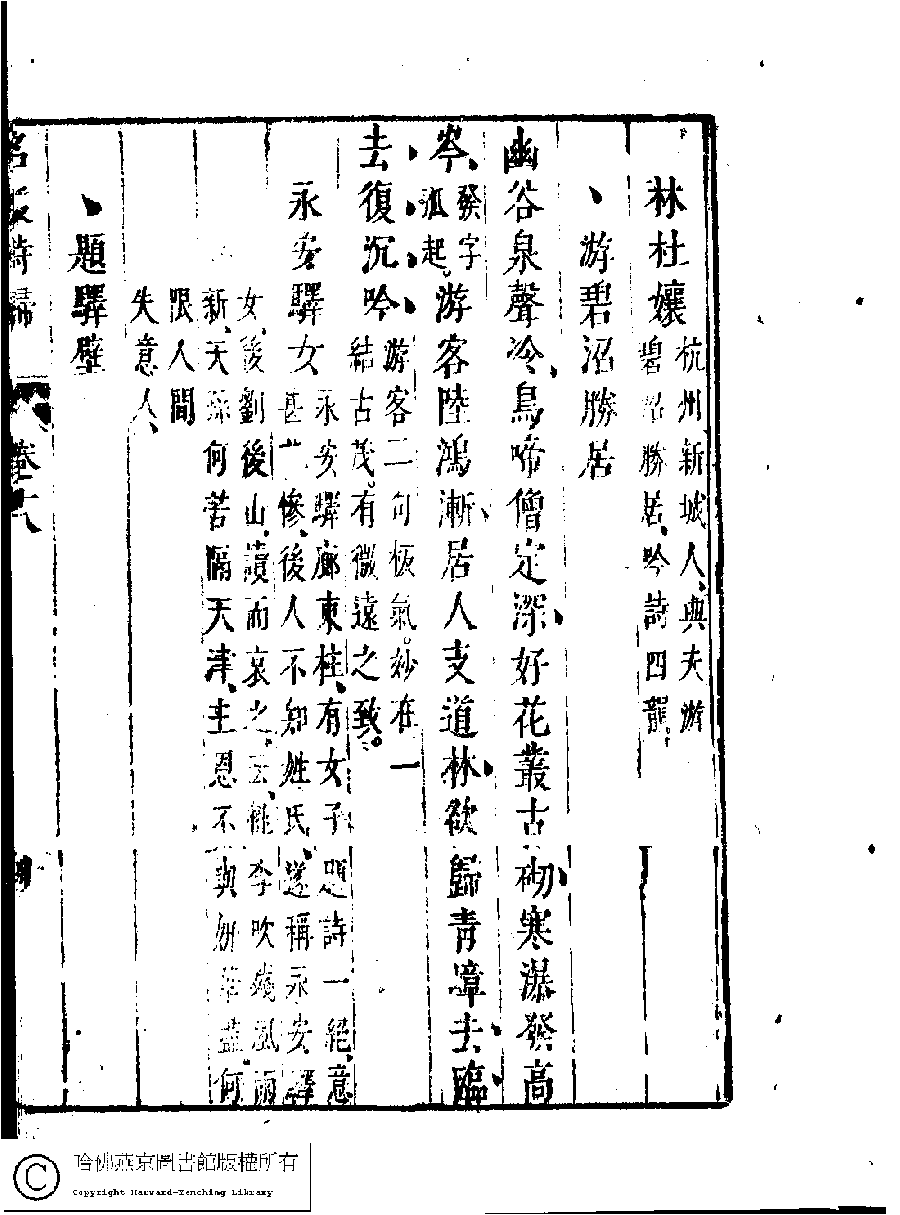 林杜孃
杭州新城人、與夫游
碧沼勝居、吟詩四韻、
游碧沼勝居
幽谷泉聲冷、鳥啼僧定深、好花叢古砌、寒瀑發高
岑、
發字
孤起。
游客陸鴻漸、居人支道林、欲歸青嶂去、臨
去復沉吟、
游客二句板氣。妙在一
結古茂。有微遠之致。
永安驛女
永安驛廊東柱、有女子題詩一絕、意
甚慘、後人不知姓氏、遂稱永安驛
女、後劉後山、讀而哀之、云、桃李吹殘風雨
新、天孫何苦隔天津、主恩不與妍華盡、何
限人間
失意人、
題驛壁
名媛詩歸 卷十八 四
哈佛燕京圖書館版權所有
Copyright Harvard-Yenching Library